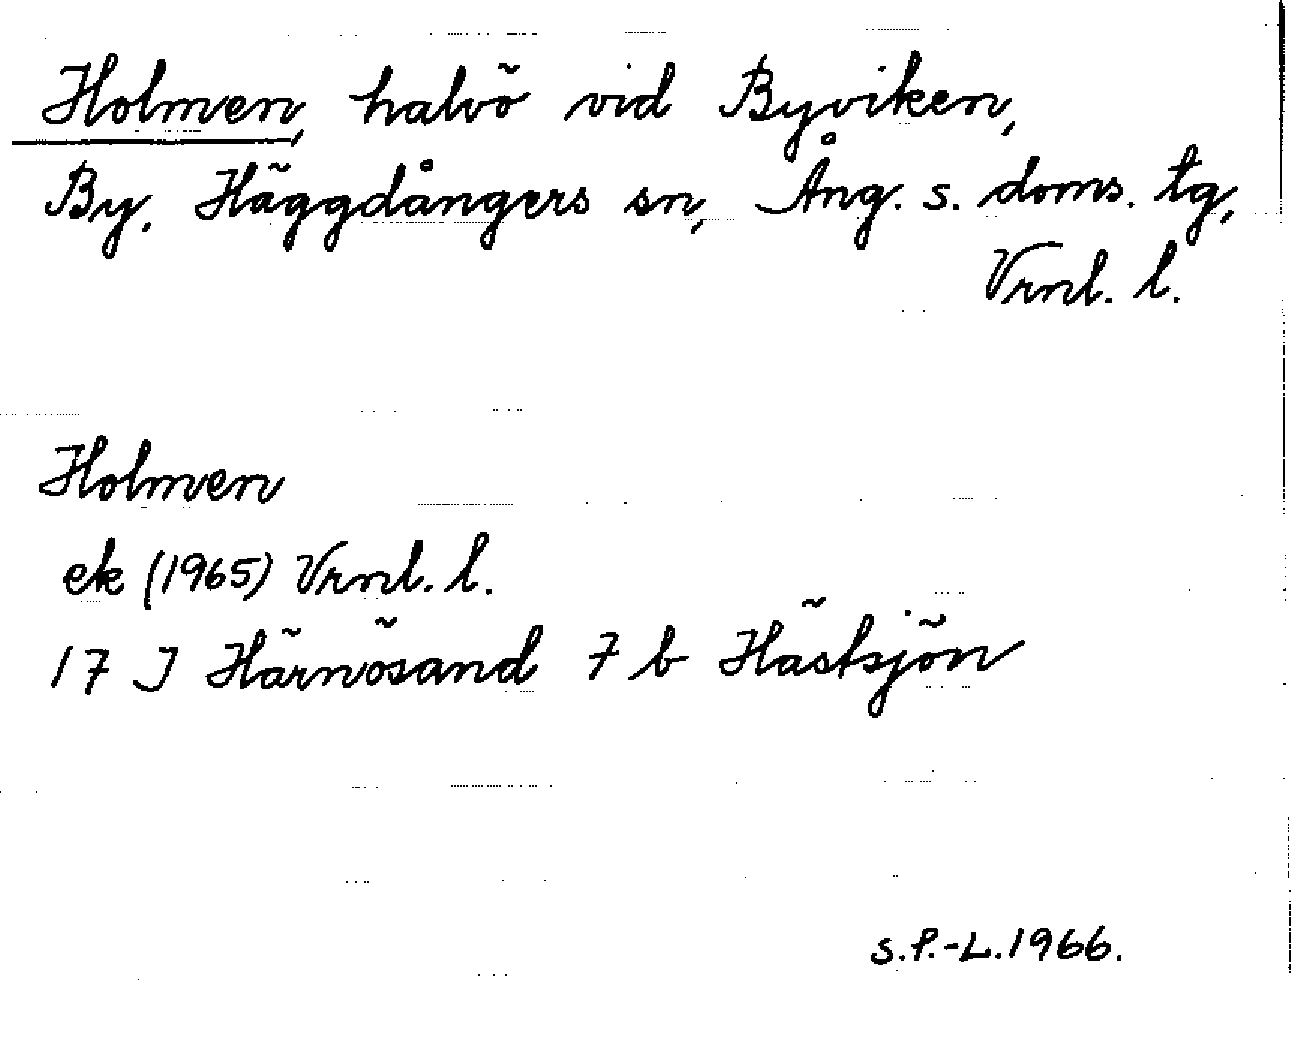 Holmen, halvö vid Byviken,
By, Häggdångers sn, Ång. s. doms. tg,
Vrnl. l.
Holmen
ek (1965) Vrnl. l.
17 J Härnösand 7 b Hästsjön
S.P.-L.1966.